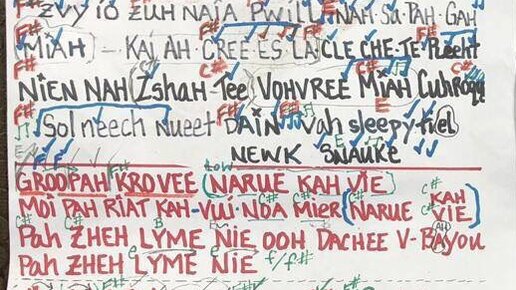 F# F# F#
ZVY IO ZUH NAIA PWILL NAH Sa-PAH-GAH
F# F# F# F#
MiAH - KAI AH-CREE-ES-LA CLE CHE-TE-
F# C# C#
NiEN NAH Zshah-Tee VOHVREE MiAH
F# E
Solneech Nueet DAiN Vah sleepy-fiel
E
NEWK SNAUKE
F F
F# low
GROOPAH KROVEE (NARUE KAH VIE)
C# C# C# C# C#
MOi PAH RIAT KAH-Vui-NOA Mier (NARUE KAH VIE)
C# B
Pah ZHEH LYME NIE OOH DACHEE V-BAYou
AH
C# e e
Pah ZHEH LYME NIE f/f#